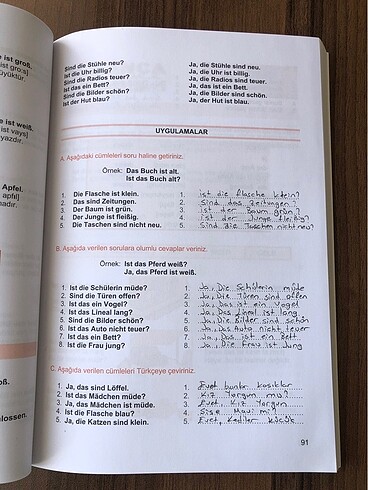 e ist groß.
ist gro:s]
üyüktür.
e ist weiß.
ist vays]
yazdır.
Apfel.
apfıl]
nadır.
oß.
hlossen.
Sind die Stühle neu?
Ist die Uhr billig?
Sind die Radios teuer?
Ist das ein Bett?
Sind die Bilder schön?
Ist der Hut blau?
Ja, die Stühle sind neu.
Ja, die Uhr ist billig.
Ja, die Radios sind teuer.
Ja, das ist ein Bett.
Ja, die Bilder sind schön.
Ja, der Hut ist blau.
UYGULAMALAR
A. Aşağıdaki cümleleri soru haline getiriniz.
Örnek: Das Buch ist alt.
Ist das Buch alt?
1. Die Flasche ist klein. 1. ist die flasche klein?
2. Das sind Zeitungen. 2. Sind das Zeitungen?
3. Der Baum ist grün. 3. ist der Baum grün?
4. Der Junge ist fleißig. 4. ist der Junge fleißig?
5. Die Taschen sind nicht neu. 5. Sind die Taschen nicht neu?
B. Aşağıda verilen sorulara olumlu cevaplar veriniz.
Örnek: Ist das Pferd weiß?
Ja, das Pferd ist weiß.
1. Ist die Schülerin müde? 1. Ja, Die Schülerin müde
2. Sind die Türen offen? 2. Ja, Die Türen sind offen
3. Ist das ein Vogel? 3. Ja, Das ist ein Vogel
4. Ist das Lineal lang? 4. Ja, Das Lineal ist lang
5. Sind die Bilder schön? 5. Ja, Die Bilder sind schön
6. Ist das Auto nicht teuer? 6. Ja, Das Auto nicht teuer
7. Ist das ein Bett? 7. Ja, Das ist ein Bett
8. Ist die Frau jung? 8. Ja, Die Frau ist Jung
C. Aşağıda verilen cümleleri Türkçeye çeviriniz.
1. Ja, das sind Löffel. 1. Evet bunlar kaşıklar
2. Ist das Mädchen müde? 2. Kız Yorgun mu?
3. Ja, das Mädchen ist müde. 3. Evet, Kız Yorgun
4. Ist die Flasche blau? 4. Şişe Mavi mi?
5. Ja, die Katzen sind klein. 5. Evet, Kediler küçük
91